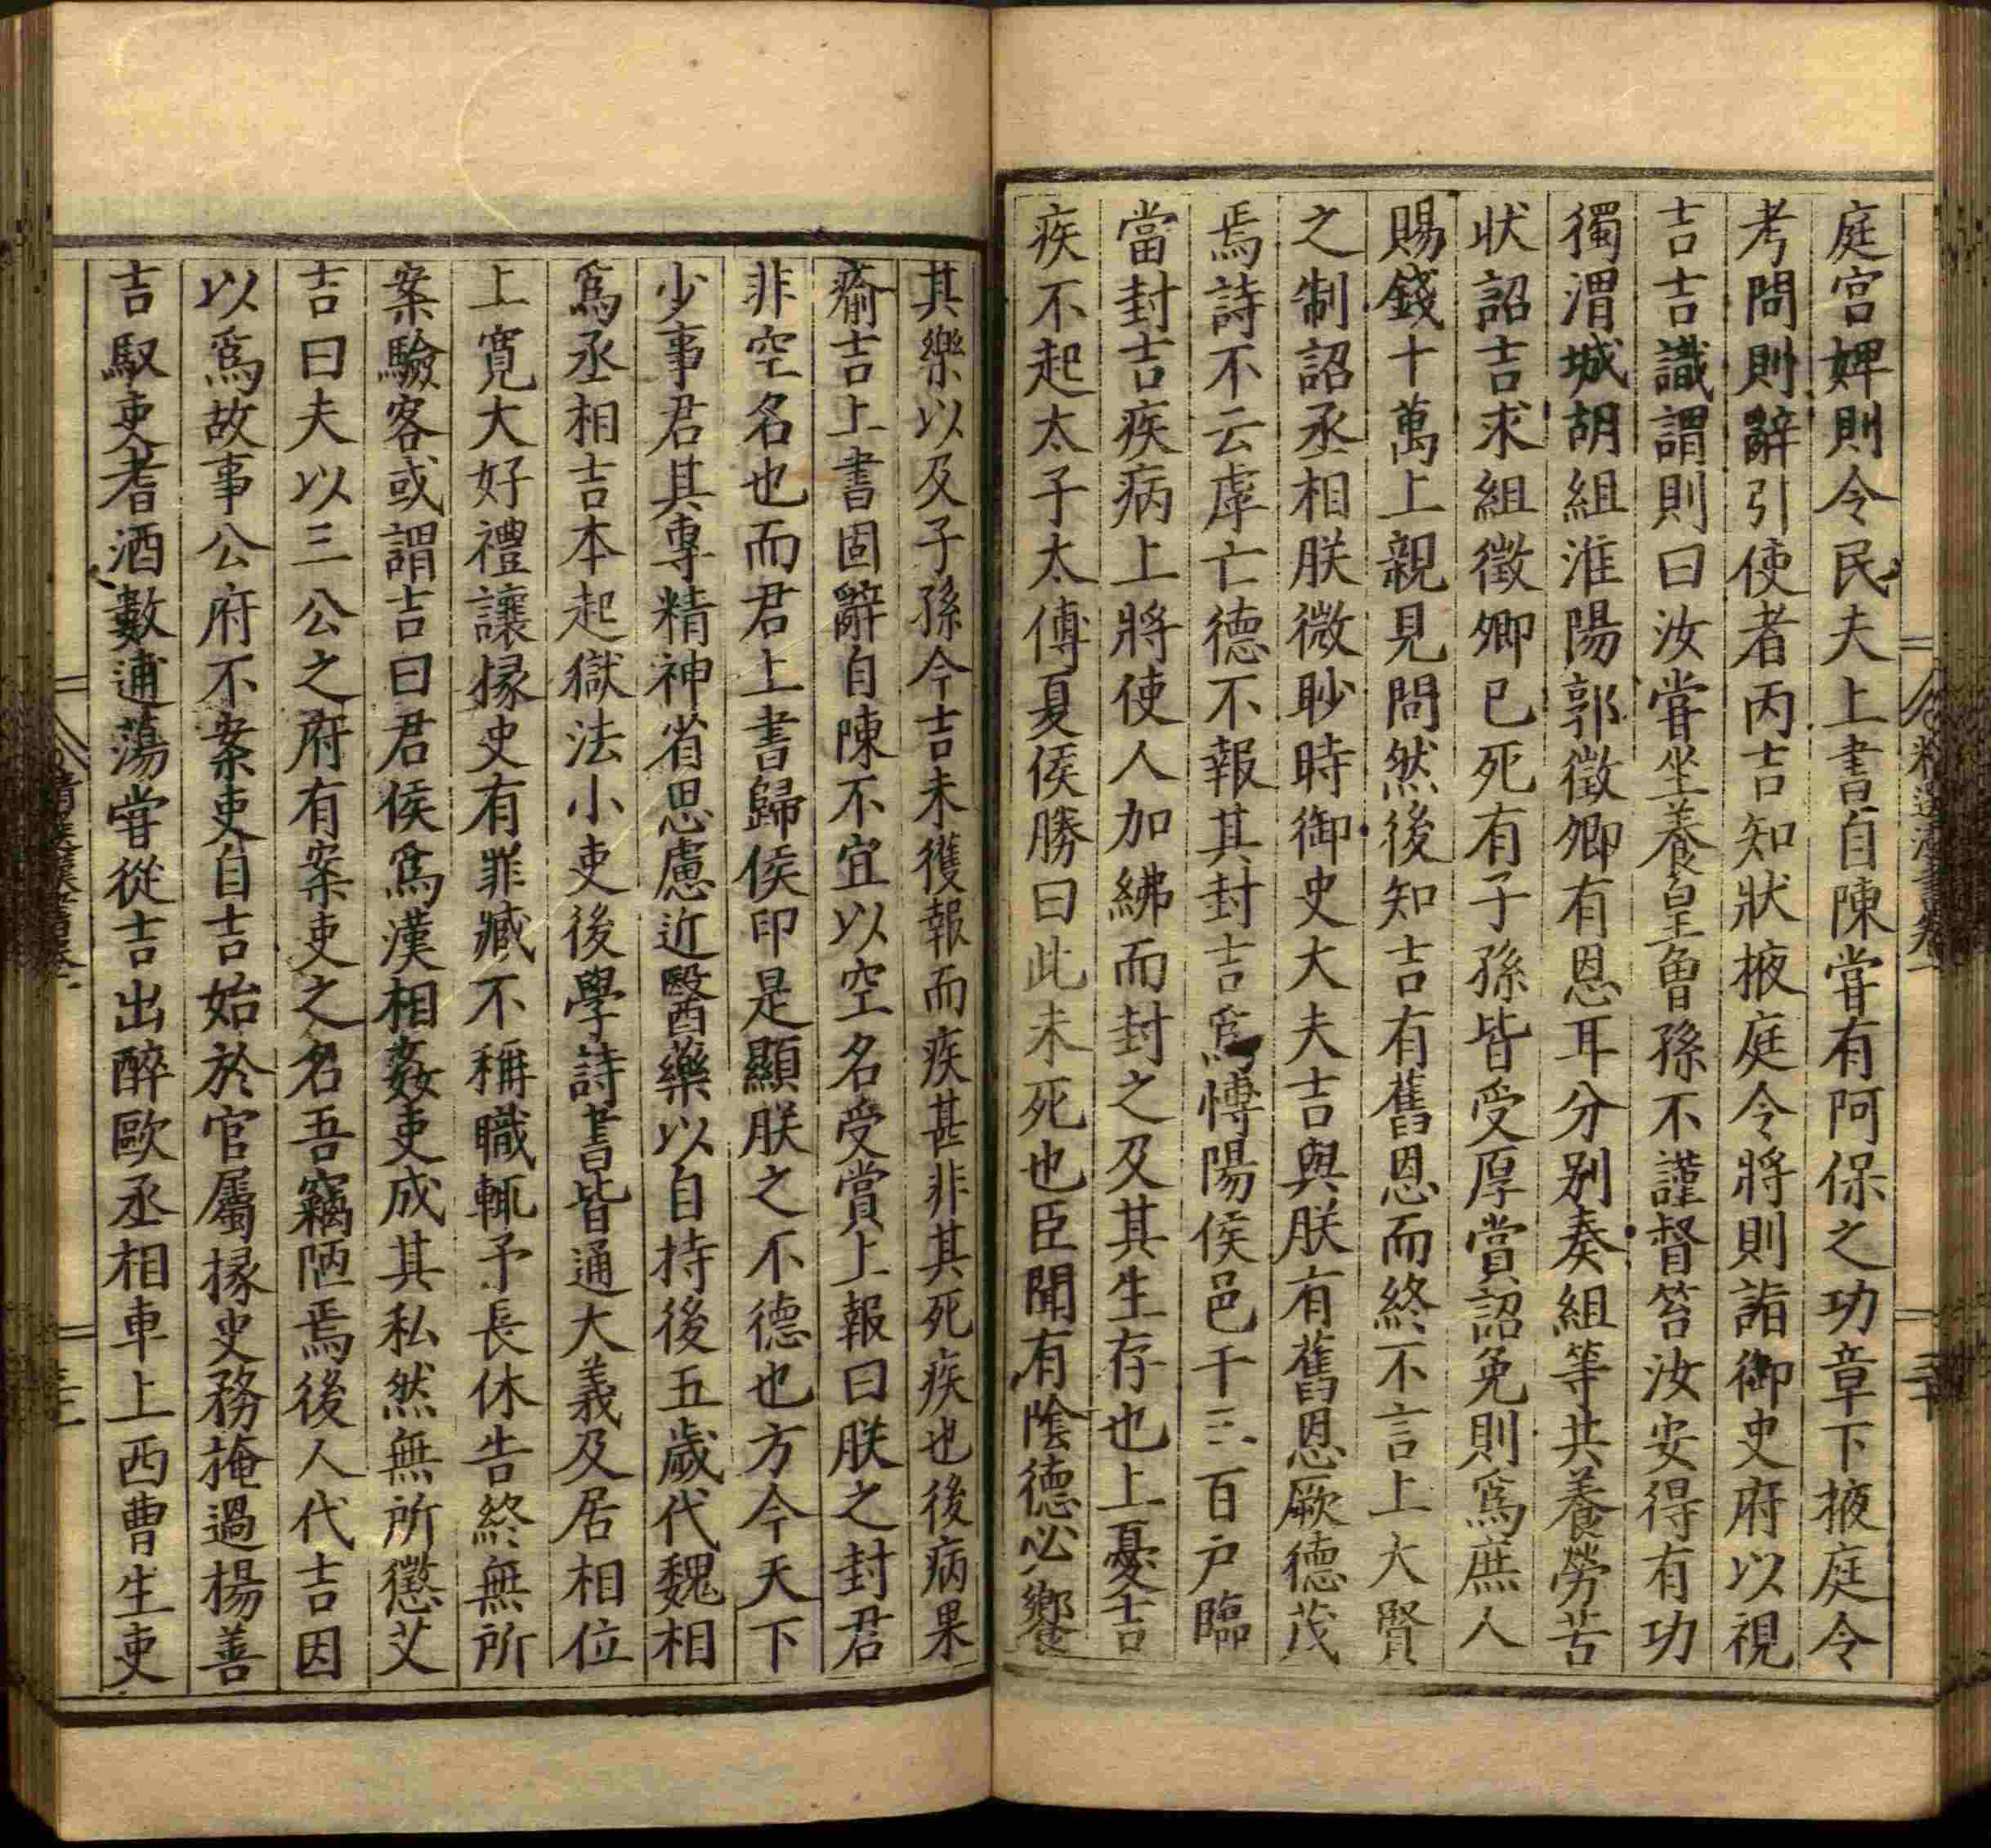 庭宮婢則令民夫上書自陳嘗有阿保之功章下掖庭令
考問則辭引使者丙吉知狀掖庭令將則詣御史府以視
吉吉識謂則曰汝嘗坐養皇曾孫不謹督笞汝安得有功
獨渭城胡組淮陽郭徵卿有恩耳分別奏組等共養勞苦
狀詔吉求組徵卿已死有子孫皆受厚賞詔免則爲庶人
賜錢十萬上親見問然後知吉有舊恩而終不言上大賢
之制詔丞相朕微眇時御史大夫吉與朕有舊恩厥德茂
焉詩不云虖亡德不報其封吉爲博陽侯邑千三百户臨
當封吉疾病上將使人加紼而封之及其生存也上憂吉
疾不起太子太傅夏侯勝曰此未死也臣聞有陰德必饗
其樂以及子孫今吉未獲報而疾甚非其死疾也後病果
瘉吉上書固辭自陳不宜以空名受賞上報曰朕之封君
非空名也而君上書歸侯印是顯朕之不德也方今天下
少事君其專精神省思慮近醫藥以自持後五歲代魏相
爲丞相吉本起獄法小吏後學詩書皆通大義及居相位
上寛大好禮讓掾史有罪臧不稱職輒予長休告終無所
案驗客或謂吉曰君侯爲漢相姦吏成其私然無所懲艾
吉曰夫以三公之府有案吏之名吾竊陋焉後人代吉因
以爲故事公府不案吏自吉始於官屬掾史務掩過楊善
吉馭吏耆酒數逋蕩嘗從吉出醉歐丞相車上西曹主吏